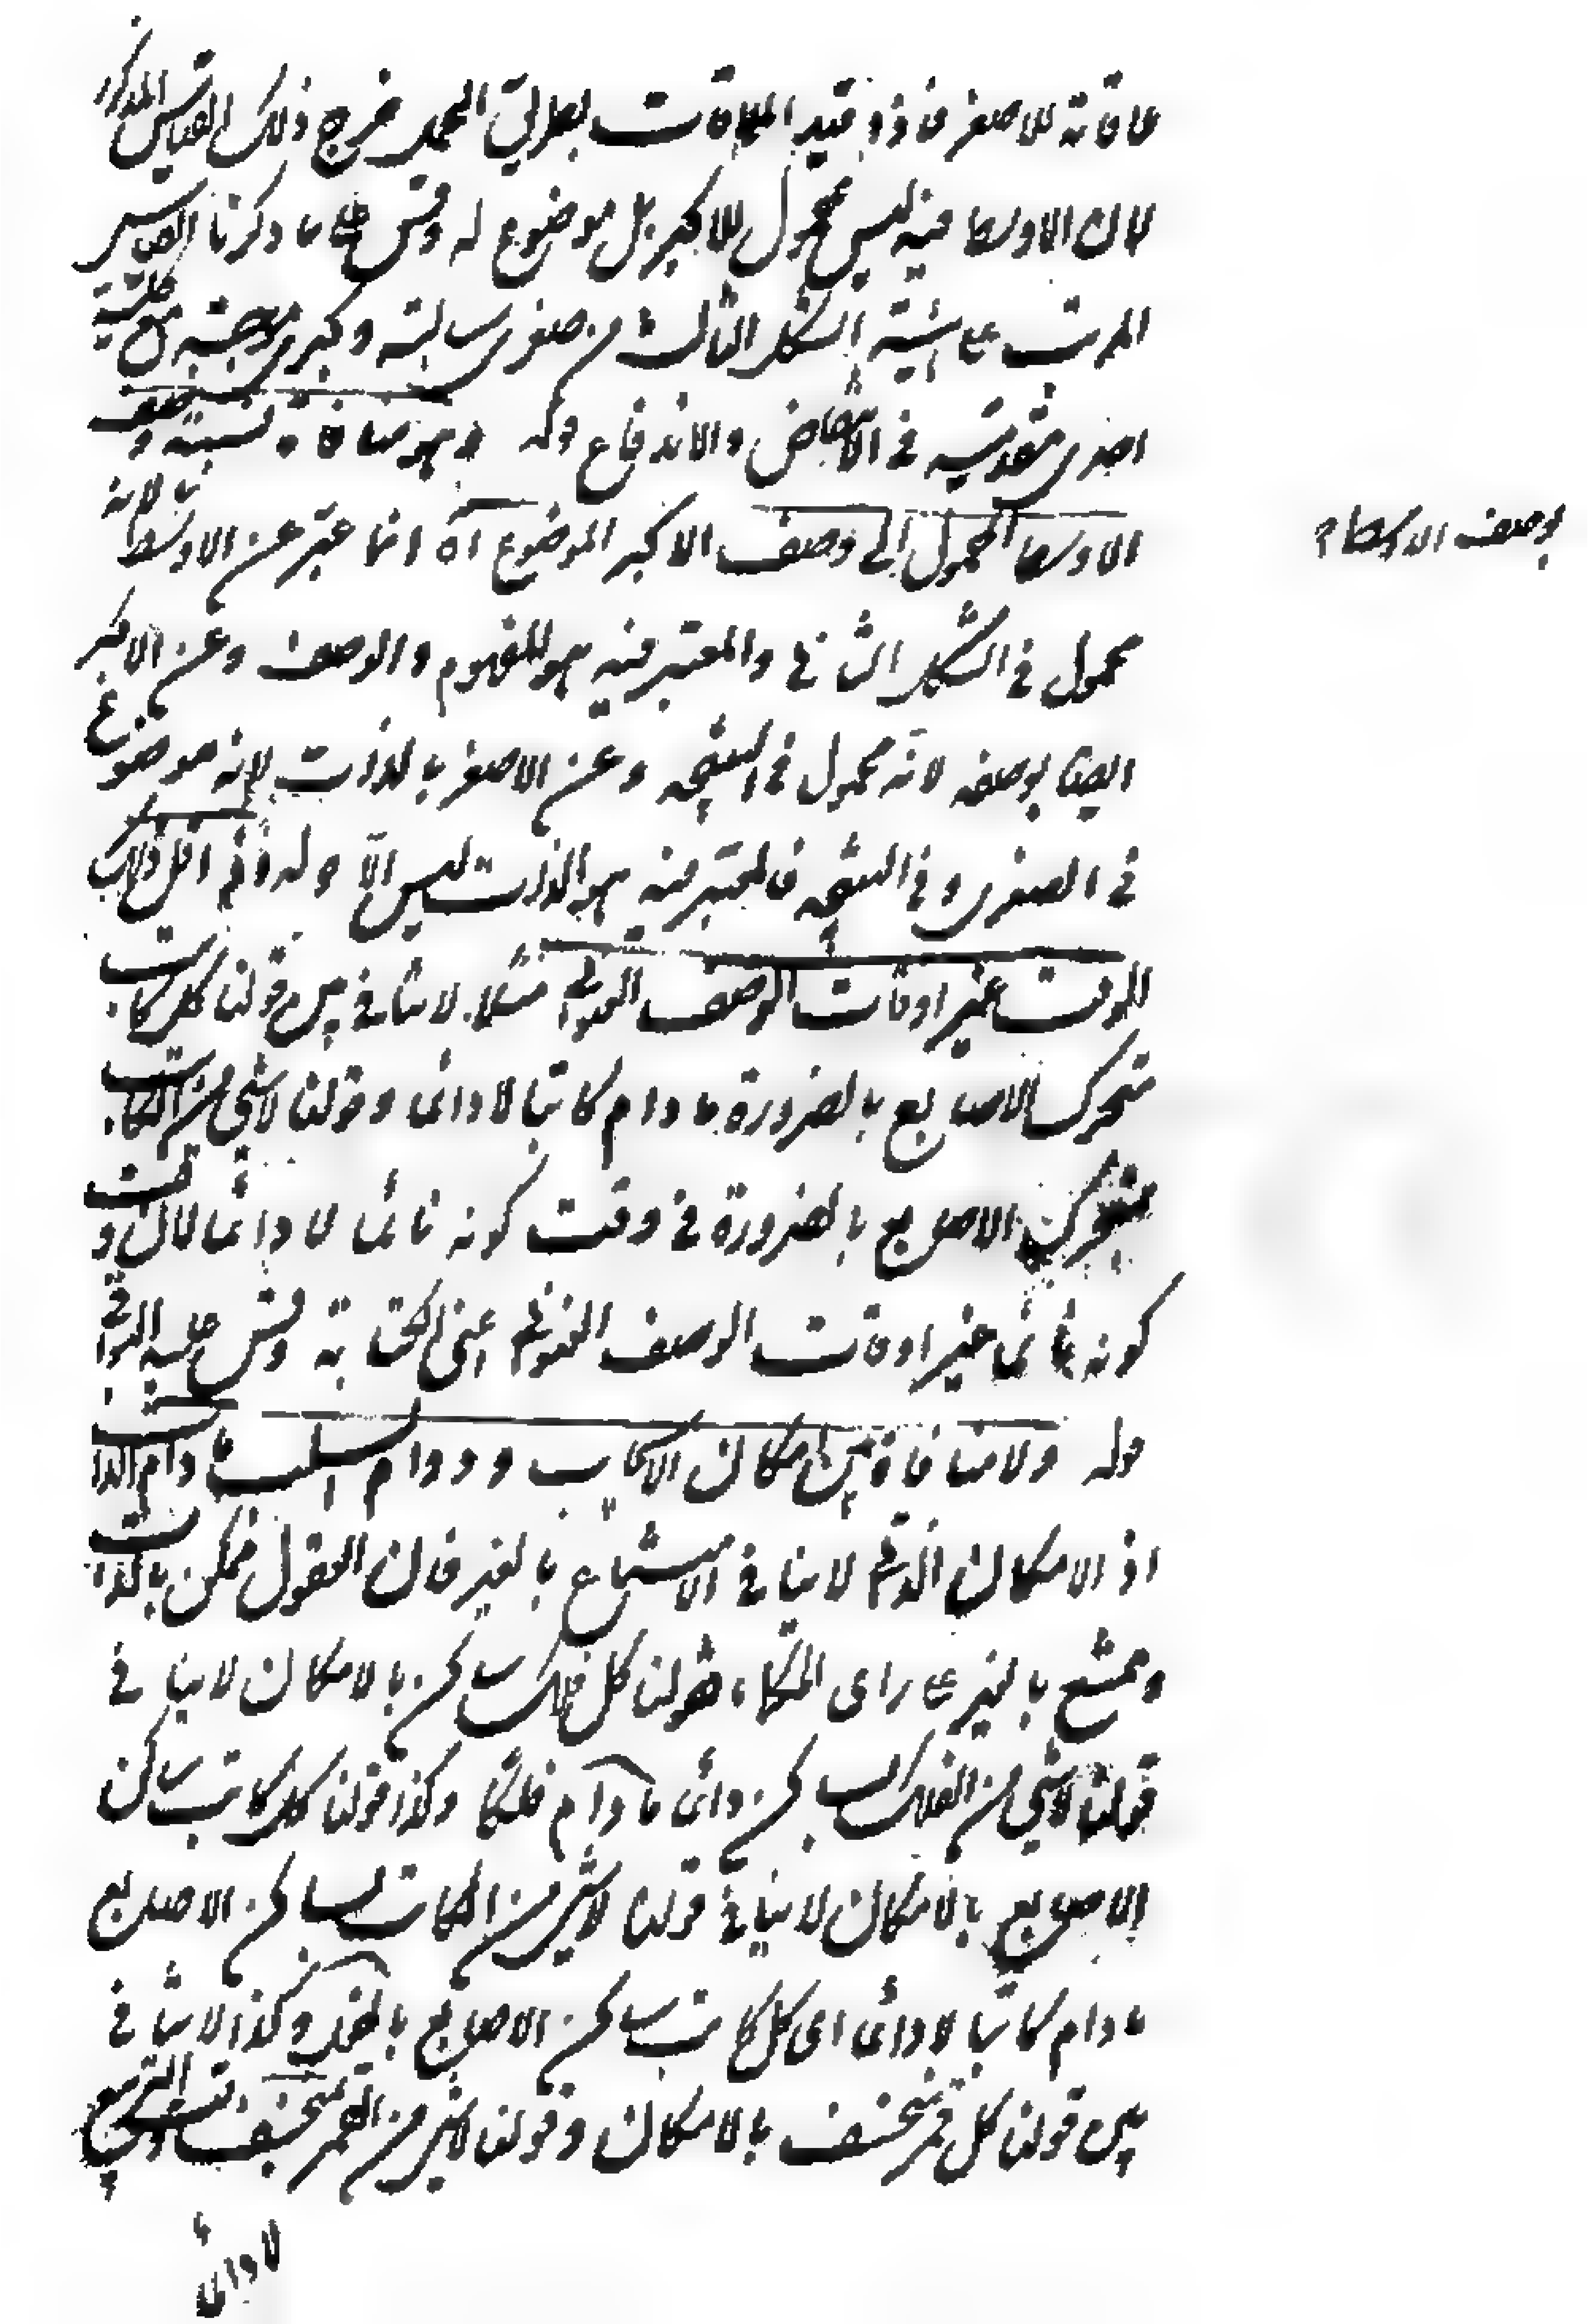 ملاقاته للاصغر فاذا قيد الملاقات بطريق الحمل خرج ذلك القياس المذكور
لان الاوسط فيه ليس محمول للاكبر بل موضوع له وقس على ما ذكرنا القياس
المرتب على هيئة الشكل الثالث من صغرى سالبة وكبرى موجبة مع كلية
احدى مقدمتيه في الانتقاض والاندفاع قوله وهو منافاة نسبة وصف
الاوسط المحمول الى وصف الاكبر الموضوع اه انما عبر عن الاوسط بالانه
بوصف الاوسط
محمول في الشكل الثاني والمعتبر فيه هو المفهوم والوصف وعن الاكبر
ايضا بوصفه لانه محمول في النتيجة وعن الاصغر بالذات لانه موضوع
في الصغرى وفي النتيجة فالمعتبر فيه هو الذات ليس الا قوله اذ لعل ذلك
الوقت غير اوقات الوصف العنواني مثلا لا تنافي بين قولنا كل كاتب
متحرك الاصابع بالضرورة ما دام كاتبا لا دائما وقولنا لا شيء من الكاتب
بمتحرك الاصابع بالضرورة في وقت كونه نائما لا دائما لان وقت
كونه نائما غير اوقات الوصف العنواني اعني الكتابة وقس عليه البواقي
قوله ولا منافاة بين امكان الايجاب ودوام السلب ما دام الذات
اذ الامكان الذاتي لا ينافي الامتناع بالغير فان العقول ممكن بالذات
وممتنع بالغير على راى الحكماء فقولنا كل فلك ساكن بالامكان لا ينافي
قولنا لا شيء من الفلك بساكن دائما ما دام فلكا وكذا قولنا كل كاتب ساكن
الاصابع بالامكان لا ينافي قولنا لا شيء من الكاتب بساكن الاصابع
ما دام كاتبا لا دائما اى كل كاتب ساكن الاصابع بالفعل وكذا لا تنافي
بين قولنا كل قمر منخسف بالامكان وقولنا لا شيء من القمر بمنخسف وقت التربيع
لا دائما